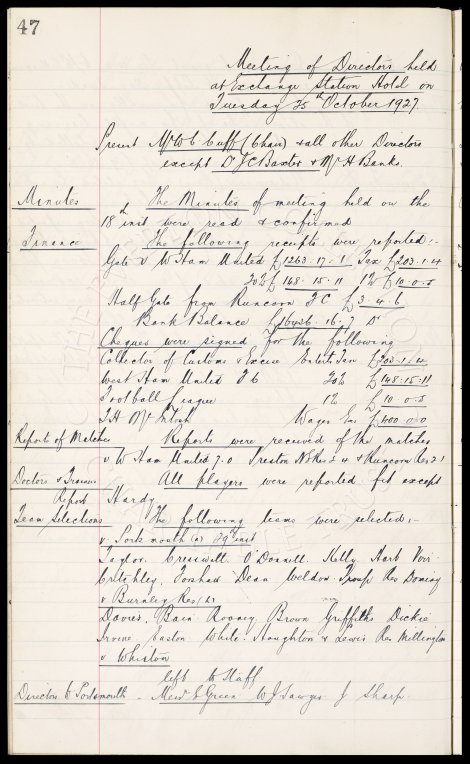 47
Meeting of Directors held
at Exchange Station Hotel on
Tuesday 25th October 1927
Present Mr W C Cuff (Chair) & all other Directors
except Dr J C Baxter & Mr H Banks.
Minutes The Minutes of meeting held on the
18th inst were read & confirmed
Finance The following receipts were reported:-
Gate v W Ham United £1263.17.1 Tax £203.1.4
20% £148.15.11 1% £10.0.5
Half Gate from Runcorn F C £3.4.6
Bank Balance £16436.16.7 Dr
Cheques were signed for the following
Collector of Customs & Excise Entert Tax £203.1.4
West Ham United F C 20% £148.15.11
Football League 1% £10.0.5
T H McIntosh Wages Enc £400.0.0
Report of Matches Reports were received of the matches
v W Ham United 7.0 Preston NE Res 3.4 & Runcorn Res 2.1
Doctors & Trainers All players were reported fit except
Report Hardy
Team Selections The following teams were selected:-
v Portsmouth (a) 29th inst
Taylor. Cresswell. O'Donnell. Kelly Hart Virr.
Critchley. Forshaw Dean Weldon. Troup Res Dominy
v Burnley Res (h)
Davies. Bain. Rooney. Brown Griffiths Dickie
Irvine Easton White. Houghton & Lewis Res Millington
v Whiston
left to Staff
Directors to Portsmouth - Messrs E Green W J Sawyer J Sharp.